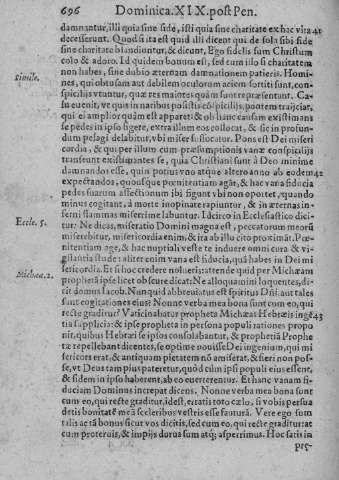 696 Dominica. XIX. post Pen.
damnantur, illi quia sine fide, isti quia sine charitate ex hac vita 41
decesserunt. Quod si ita est quid illi dicent qui de sola sibi fide
sine charitate blandiuntur, & dicunt, Ego fidelis sum Christum
colo & adoro. Id quidem bonum est, sed cura illo si charitatem
non habes, sine dubio æternam damnationem patieris. Homi-
Simile.
nes, qui obtusam aut debilem oculorum aciem sortiti sunt, con-
spicillijs vtuntur, quæ res maiores quàm sunt repræsentant. Ca-
su euenit, vt quis in naribus positis cōspicilis, pontem traijciat,
qui ei amplior quàm est apparet: & ob hanc causam existimans
se pedes in ipso figere, extra illum eos collocat, & sic in profun-
dum pelagi delabitur, vbi miser suffocatur. Pons est Dei miseri
cordia, & qui per illum cum præsumptionis vanæ conspicilijs
transeunt existimantes se, quia Christiani sunt à Deo minime
damnandos esse, quin potius vno atque altero anno ab eodem 42
expectandos, quousque pœnitentiam agāt, & hac vana fiducia
pedes suarum affectionum ibi figunt vbi non oportet, quando
minus cogitant, à morte inopinate rapiuntur, & in æternas in-
ferni flammas miserrime labuntur. Idcirco in Ecclesiastico dici-
Eccle. 5.
tur: Ne dicas, miseratio Domini magna est, peccatorum meorū
miserebitur, misericordia enim, & ira ab illo citò proximāt. Pœ-
nitentiam age, & hac nuptiali veste te induere omni cura & vi-
gilantia stude: aliter enim vana est fiducia, quā habes in Dei mi
sericordia. Et si hoc credere nolueris: attende quid per Michæam
Michæa. 2.
prophetā ipse licet obscure dicat: Ne alloquamini loquentes, di-
cit domus Iacob. Nunquid abbreuiatus est spiritus Dñi. aut tales
sunt cogitationes eius? Nonne verba mea bona sunt cum eo, qui
recte graditur? Vaticinabatur propheta Michæas Hebræis ingē 43
tia supplicia: & ipse propheta in persona populi rationes propo
nit, quibus Hebræi se ipsos consolabantur, & prophetiā Prophe
tæ repellebant dicentes, se optime nouisse Dei ingenium, qui mi
sericors erat, & antiquam pietatem nō amiserat, & fieri non pos-
se, vt Deus tam pius pateretur, quòd cùm ipsi populi eius essent,
& fidem in ipso haberent, ab eo euerterentur. Et hanc vanam fi-
duciam Dominus increpat dicens. Nonne verba mea bona sunt
cum eo, qui recte graditur, idest, erratis toto cælo, si vobis persua
detis bonitatē meā sceleribus vestris esse fauturā. Vere ego sum
talis ac tā bonus sicut vos dicitis, sed cum eo, qui recte graditur: at
cum proteruis, & impijs durus sum atq; asperrimus. Hoc satis in
per-